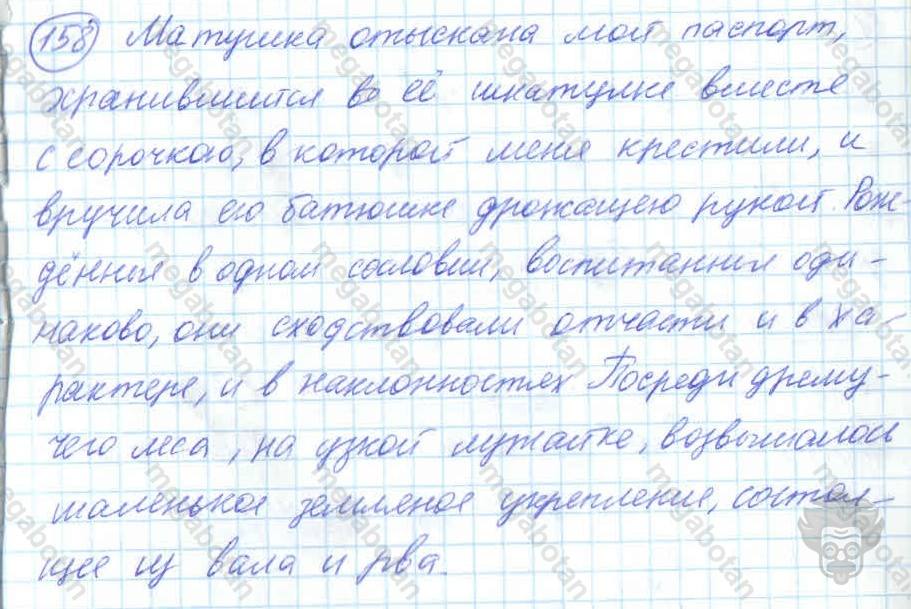 158 Матушка отыскала мой паспорт,
хранившийся в её шкатулке вместе
с сорочкою, в которой меня крестили, и
вручила его батюшке дрожащею рукой. Рож-
дённые в одном сословии, воспитанные оди-
наково, они сходствовали отчасти и в ха-
рактере, и в наклонностях Посреди дрему-
чего леса, на узкой лужайке, возвышалось
маленькое земляное укрепление, состоя-
щее из вала и рва.
megabotan